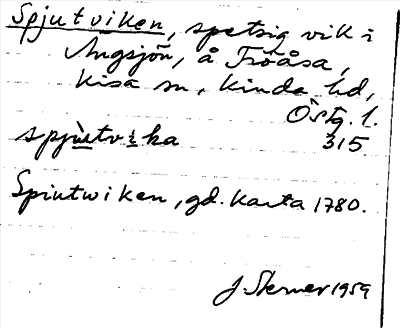 Spjutviken, spetsig vik i
Ängsjön, å Fröåsa,
Kisa sn, Kinda hd,
Östg. l.
spjùtvika 315
Spiutwiken, gd. karta 1780.
J. Sterner 1959